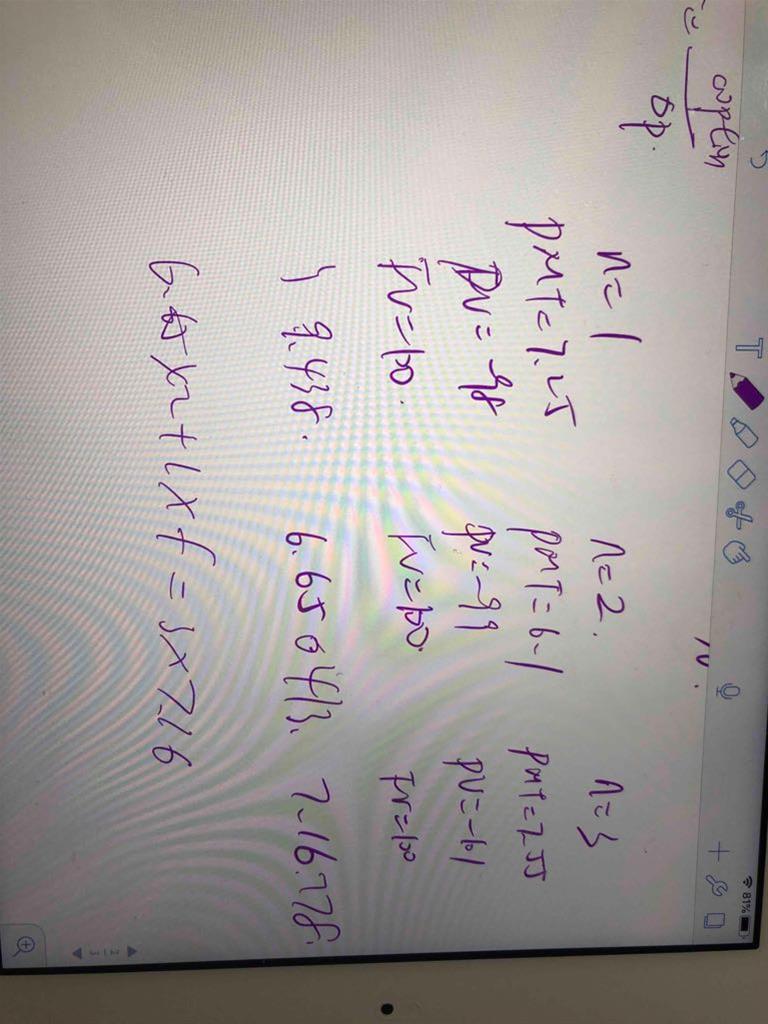 n=1 n=2. n=3
PMT=7.25 PMT=6.1 PMT=7.55
PV=-98 PV=-99 PV=-101
FV=100. FV=100. FV=100
9.438. 6.650413. 7.16778.
6.65×2+1×f=3×7.16
81%